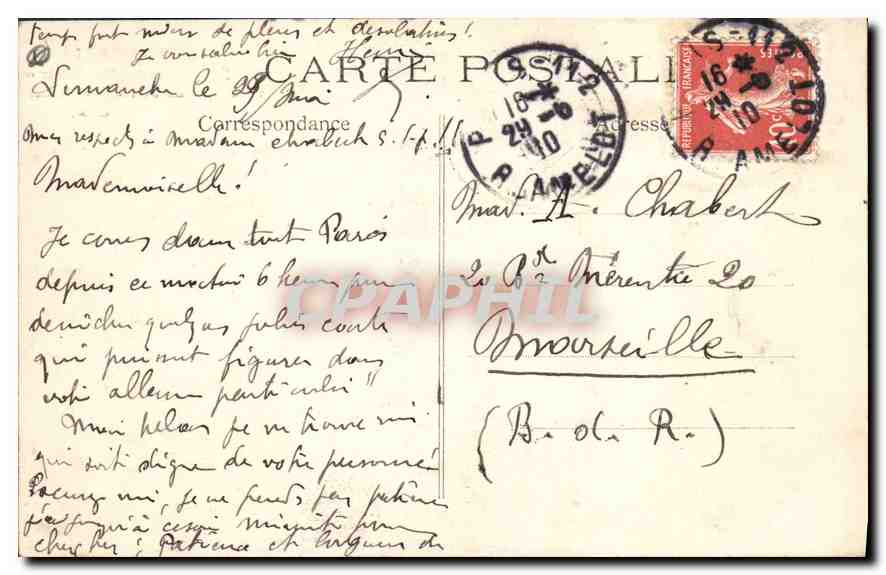 temps font más de pleurs et desolations!
Je vous salue bien Henri
CARTE POSTALE
Dimanche le 29 Mai
Correspondance
Adresse
Mes respects à Madame Chabert S.V.P!!
Mademoiselle!
Je cours dans tout Paris
depuis ce matin 6 heures pour
denicher quelques jolies cartes
qui puissent figurer dans
votre album particulier"
Mais helas je ne trouve rien
qui soit digne de votre personne
Excusez moi, je ne perds pas patience
j'ai jusqu'à ce soir minuit pour
chercher; Patience et longueur de
Mad. A. Chabert
20 Bd Mérentié 20
Marseille
(B. d. R.)
PARIS - 112
16 *
24 - 6
10
R. AMELOT
REPUBLIQUE FRANÇAISE
POSTES
10c
CPAPHIL